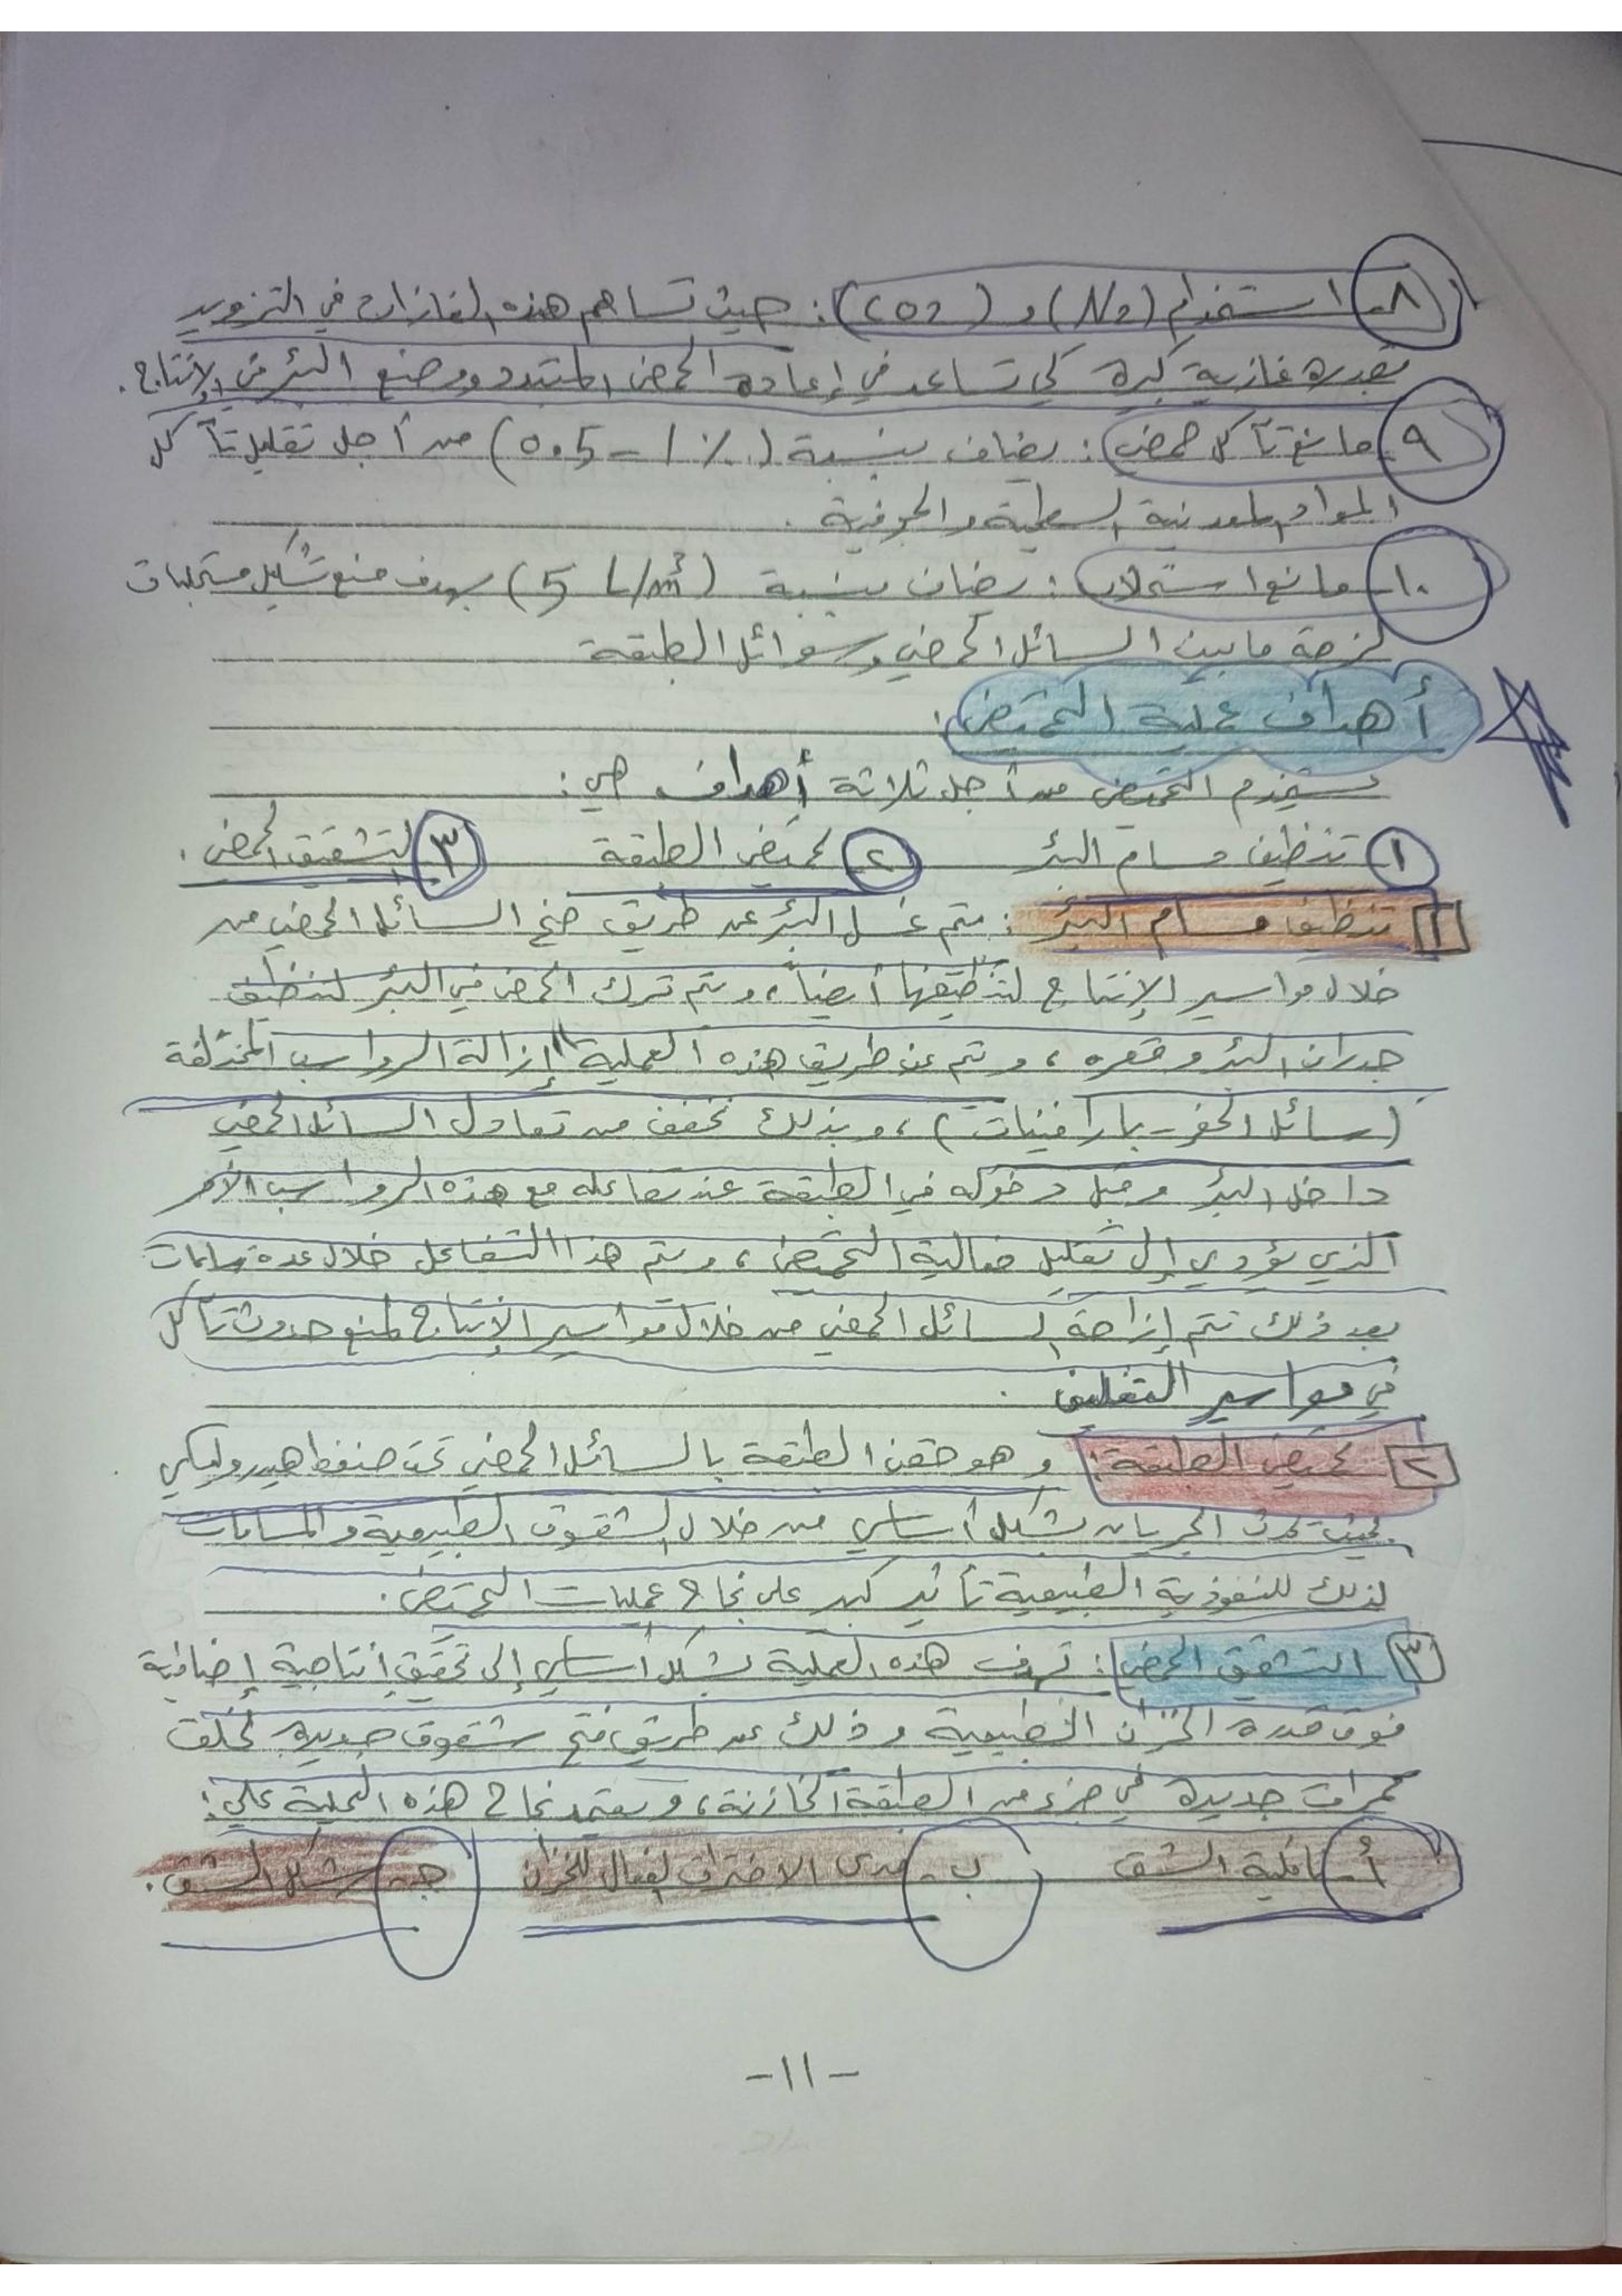 ٨- استخدام (N2) و (CO2): حيث تساهم هذه الغازات في التزويد
بقدرة غازية كبيرة كي تساعد في إعادة الحمض المتبدد ووضع البئر في الإنتاج.
٩- مانع تآكل حمضي: يضاف بنسبة (0.5 - 1 %) من أجل تقليل تآكل
المواد المعدنية السطحية والجوفية.
١٠- مانع استحلاب: يضاف بنسبة (5 L/m³) بهدف منع تشكيل مستحلبات
لزجة ما بين السائل الحمضي وسوائل الطبقة
أهداف عملية التحميض:
يستخدم التحميض من أجل ثلاثة أهداف هي:
١ تنظيف مسام البئر ٢ تحميض الطبقة ٣ التشقيق الحمضي.
١ تنظيف مسام البئر: يتم غسل البئر عن طريق ضخ السائل الحمضي من
خلال مواسير الإنتاج لتنظيفها أيضاً، ويتم ترك الحمض في البئر لتنظيف
جدران البئر وقعره، ويتم عن طريق هذه العملية "إزالة الرواسب المختلفة
(سائل الحفر - بارافينات)، وبذلك نخفف من تعادل السائل الحمضي
داخل البئر وقبل دخوله في الطبقة عند تفاعله مع هذه الرواسب الأمر
الذي يؤدي إلى تقليل فعالية التحميض، ويتم هذا التفاعل خلال عدة ساعات
بعد ذلك تتم إزاحة السائل الحمضي من خلال مواسير الإنتاج لمنع حدوث تآكل
في مواسير التغليف.
٢ تحميض الطبقة: وهو حقن الطبقة بالسائل الحمضي تحت ضغط هيدروليكي
بحيث يحدث الجريان بشكل أساسي من خلال الشقوق الطبيعية والمسامات
لذلك للنفوذية الطبيعية تأثير كبير على نجاح عمليات التحميض.
٣ التشقيق الحمضي: تهدف هذه العملية بشكل أساسي إلى تحقيق إنتاجية إضافية
فوق قدرة الخزان الطبيعية وذلك عن طريق فتح شقوق جديدة تخلق
ممرات جديدة في جزء من الطبقة الخازنة، ويعتمد نجاح هذه العملية على:
أ- ناقلية الشق ب- مدى الاختراق الفعال للخزان ج- شكل الشق.
-١١-